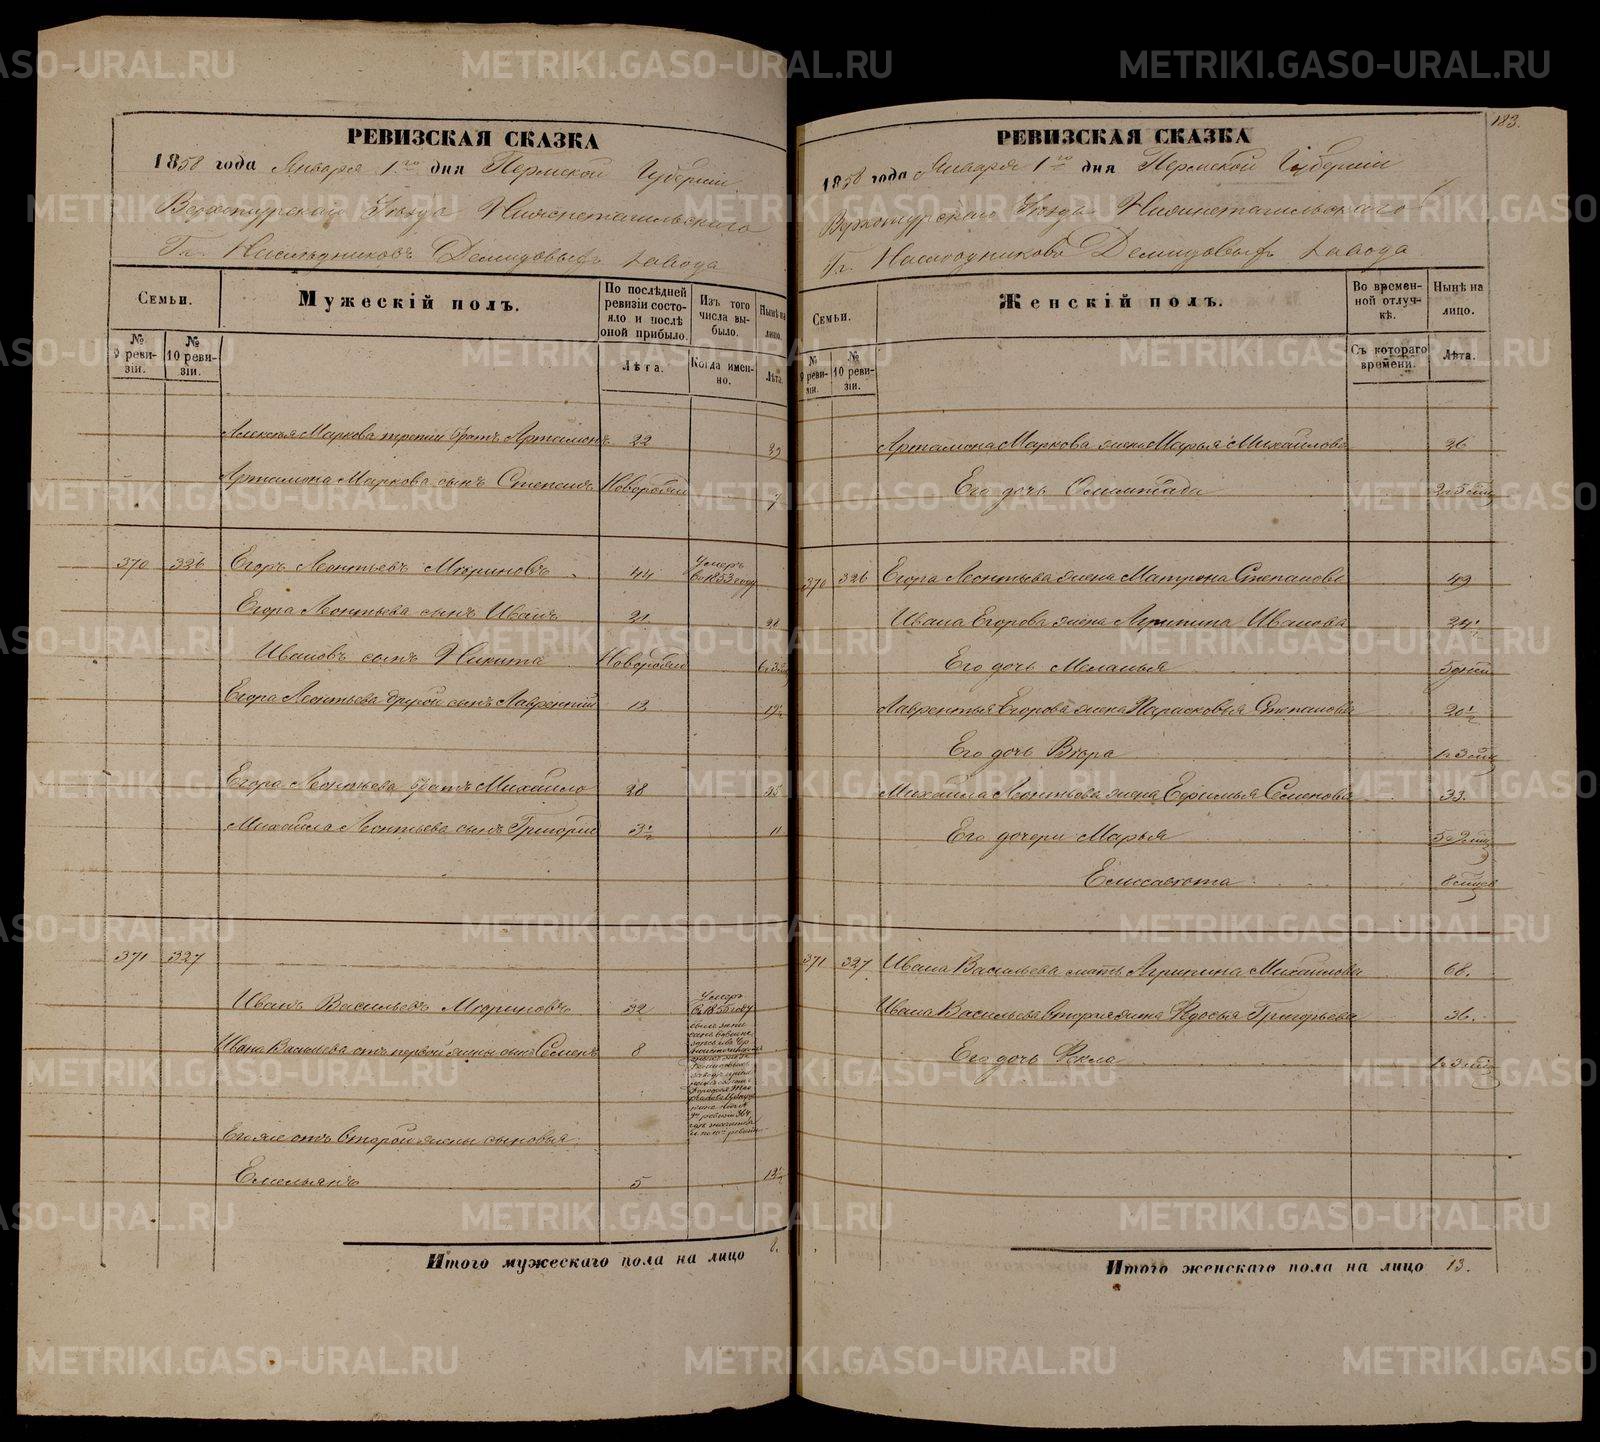 РЕВИЗСКАЯ СКАЗКА
1858 года Января 1го дня Пермской Губерніи
Верхотурскаго Уѣзда Нижнетагильскаго
Гг. Наслѣдниковъ Демидовыхъ завода
Семьи.
Мужескій полъ.
По послѣдней ревизіи состояло и послѣ оной прибыло.
Изъ того числа выбыло.
Нынѣ на лицо.
№ 9 ревизіи.
№ 10 ревизіи.
Лѣта.
Когда именно.
Лѣта.
Алексѣя Маркова третій братъ Артамонъ 22 29
Артамона Маркова сынъ Степанъ Новорожд 7
370 326 Егоръ Леонтьевъ Мюриновъ 44 Умеръ въ 1853 году
Егора Леонтьева сынъ Иванъ 21 28
Ивановъ сынъ Никита Новорожд
Егора Леонтьева другой сынъ Лаврентій 12 19½
Егора Леонтьева братъ Михайло 28 35
Михайла Леонтьева сынъ Григорій 3½ 11
371 327
Иванъ Васильевъ Мюриновъ 32 Умеръ въ 1855 году
Ивана Васильева отъ первой жены сынъ Семенъ 8
Его же отъ второй жены сыновья
Емельянъ 5 12½
Итого мужескаго пола на лицо 8.
183.
РЕВИЗСКАЯ СКАЗКА
1858 года Января 1го дня Пермской Губерніи
Верхотурскаго Уѣзда Нижнетагильскаго
Гг. Наслѣдниковъ Демидовыхъ завода
Семьи.
Женскій полъ.
Во временной отлучкѣ.
Нынѣ на лицо.
№ 9 ревизіи.
№ 10 ревизіи.
Съ котораго времени.
Лѣта.
Артамона Маркова жена Марья Михайлова 26
Его дочь Олимпіада
370 326 Егора Леонтьева жена Матрона Степанова 49
Ивана Егорова жена Агрипина Иванова 24½
Его дочь Меланья 5 дней
Лаврентья Егорова жена Парасковья Степанова 20½
Его дочь Вѣра
Михайла Леонтьева жена Ефимья Семенова 33.
Его дочери Марья
Елисавета
371 327 Ивана Васильева мать Агрипина Михайлова 68.
Ивана Васильева вторая жена Федосья Григорьева 36.
Его дочь Фекла
Итого женскаго пола на лицо 13.
METRIKI.GASO-URAL.RU